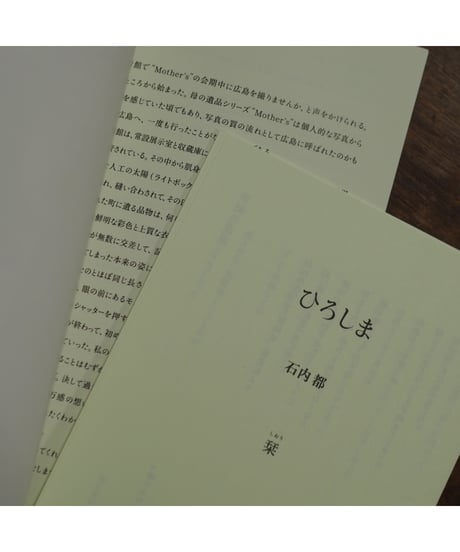 館で“Mother's”の会期中に広島を撮りませんか、と声をかけられる。
ころから始まった。母の遺品シリーズ“Mother's”は個人的な写真から
を感じていた頃でもあり、写真の質の流れとして広島に呼ばれたのかも
広島へ、一度も行ったことが
館は、常設展示室と収蔵庫に
されている。その中から肌身
人工の太陽（ライトボック
れ、縫い合わされて、その
た町に遺る品物は、何
鮮明な彩色と上質な衣
が無数に交差して、
てしまった本来の姿に
たのとほぼ同じ長さ
、眼の前にあるそ
シャッターを押す
が終わって、初め
ていった。私の
ることはむずか
、決して過
万感の想
たくわか
てくれ
ひろしま
石内都
しおり
栞